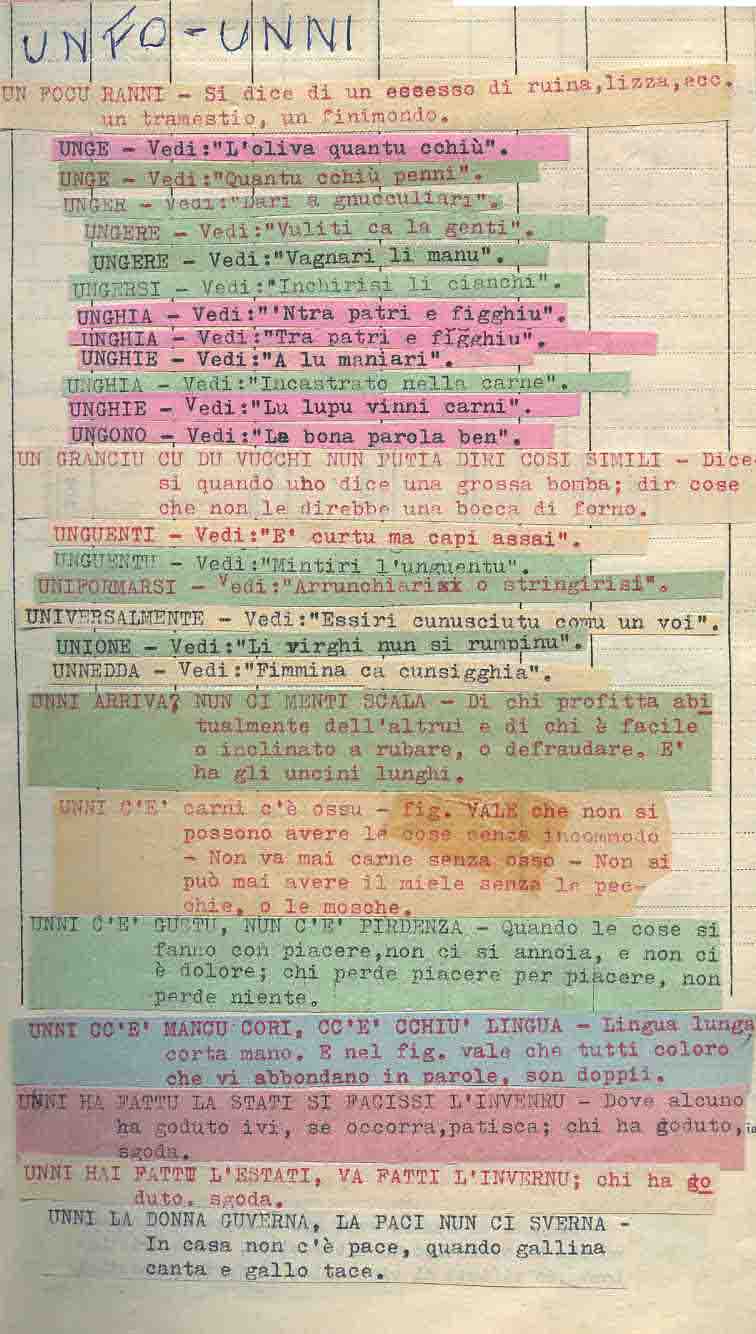 UNFO-UNNI
UN FOCU RANNI - Si dice di un eccesso di ruina,lizza,ecc.
un tramestio, un finimondo.
UNGE - Vedi:"L'oliva quantu cchiù".
UNGE - Vedi:"Quantu cchiù penni".
UNGER - Vedi:"Dari a gnucculiari".
UNGERE - Vedi:"Vuliti ca la genti".
UNGERE - Vedi:"Vagnari li manu".
UNGERSI - Vedi:"Inchirisi li cianchi".
UNGHIA - Vedi:"'Ntra patri e figghiu".
UNGHIA - Vedi:"Tra patri e figghiu".
UNGHIE - Vedi:"A lu maniari".
UNGHIA - Vedi:"Incastrato nella carne".
UNGHIE - Vedi:"Lu lupu vinni carni".
UNGONO - Vedi:"La bona parola ben".
UN GRANCIU CU DU VUCCHI NUN PUTIA DIRI COSI SIMILI - Dice-
si quando uho dice una grossa bomba; dir cose
che non le direbbe una bocca di forno.
UNGUENTI - Vedi:"E' curtu ma capi assai".
UNGUENTU - Vedi:"Mintiri l'unguentu".
UNIFORMARSI - Vedi:"Arrunchiarisi o stringirisi".
UNIVERSALMENTE - Vedi:"Essiri cunusciutu comu un voi".
UNIONE - Vedi:"Li virghi nun si rumpinu".
UNNEDDA - Vedi:"Fimmina ca cunsigghia".
UNNI ARRIVA? NUN CI MENTI SCALA - Di chi profitta abi
tualmente dell'altrui e di chi è facile
o inclinato a rubare, o defraudare. E'
ha gli uncini lunghi.
UNNI C'E' carni c'è ossu - fig. VALE che non si
possono avere le cose senza incommodo
- Non va mai carne senza osso - Non si
può mai avere il miele senza le pec-
chie, o le mosche.
UNNI C'E' GUSTU, NUN C'E' PIRDENZA - Quando le cose si
fanno con piacere,non ci si annoia, e non ci
è dolore; chi perde piacere per piacere, non
perde niente.
UNNI CC'E' MANCU CORI, CC'E' CCHIU' LINGUA - Lingua lunga,
corta mano. E nel fig. vale che tutti coloro
che vi abbondano in parole, son doppii.
UNNI HA FATTU LA STATI SI FACISSI L'INVENRU - Dove alcuno
ha goduto ivi, se occorra,patisca; chi ha goduto,
sgoda.
UNNI HAI FATTU L'ESTATI, VA FATTI L'INVERNU; chi ha go
duto. sgoda.
UNNI LA DONNA GUVERNA, LA PACI NUN CI SVERNA -
In casa non c'è pace, quando gallina
canta e gallo tace.